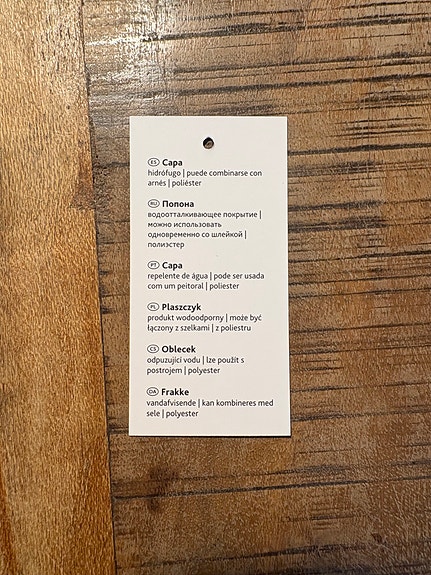 ES Capa
hidrófugo | puede combinarse con
arnés | poliéster
RU Попона
водоотталкивающее покрытие |
можно использовать
одновременно со шлейкой |
полиэстер
PT Capa
repelente de água | pode ser usada
com um peitoral | poliester
PL Płaszczyk
produkt wodoodporny | może być
łączony z szelkami | z poliestru
CS Oblecek
odpuzující vodu | lze použít s
postrojem | polyester
DA Frakke
vandafvisende | kan kombineres med
sele | polyester